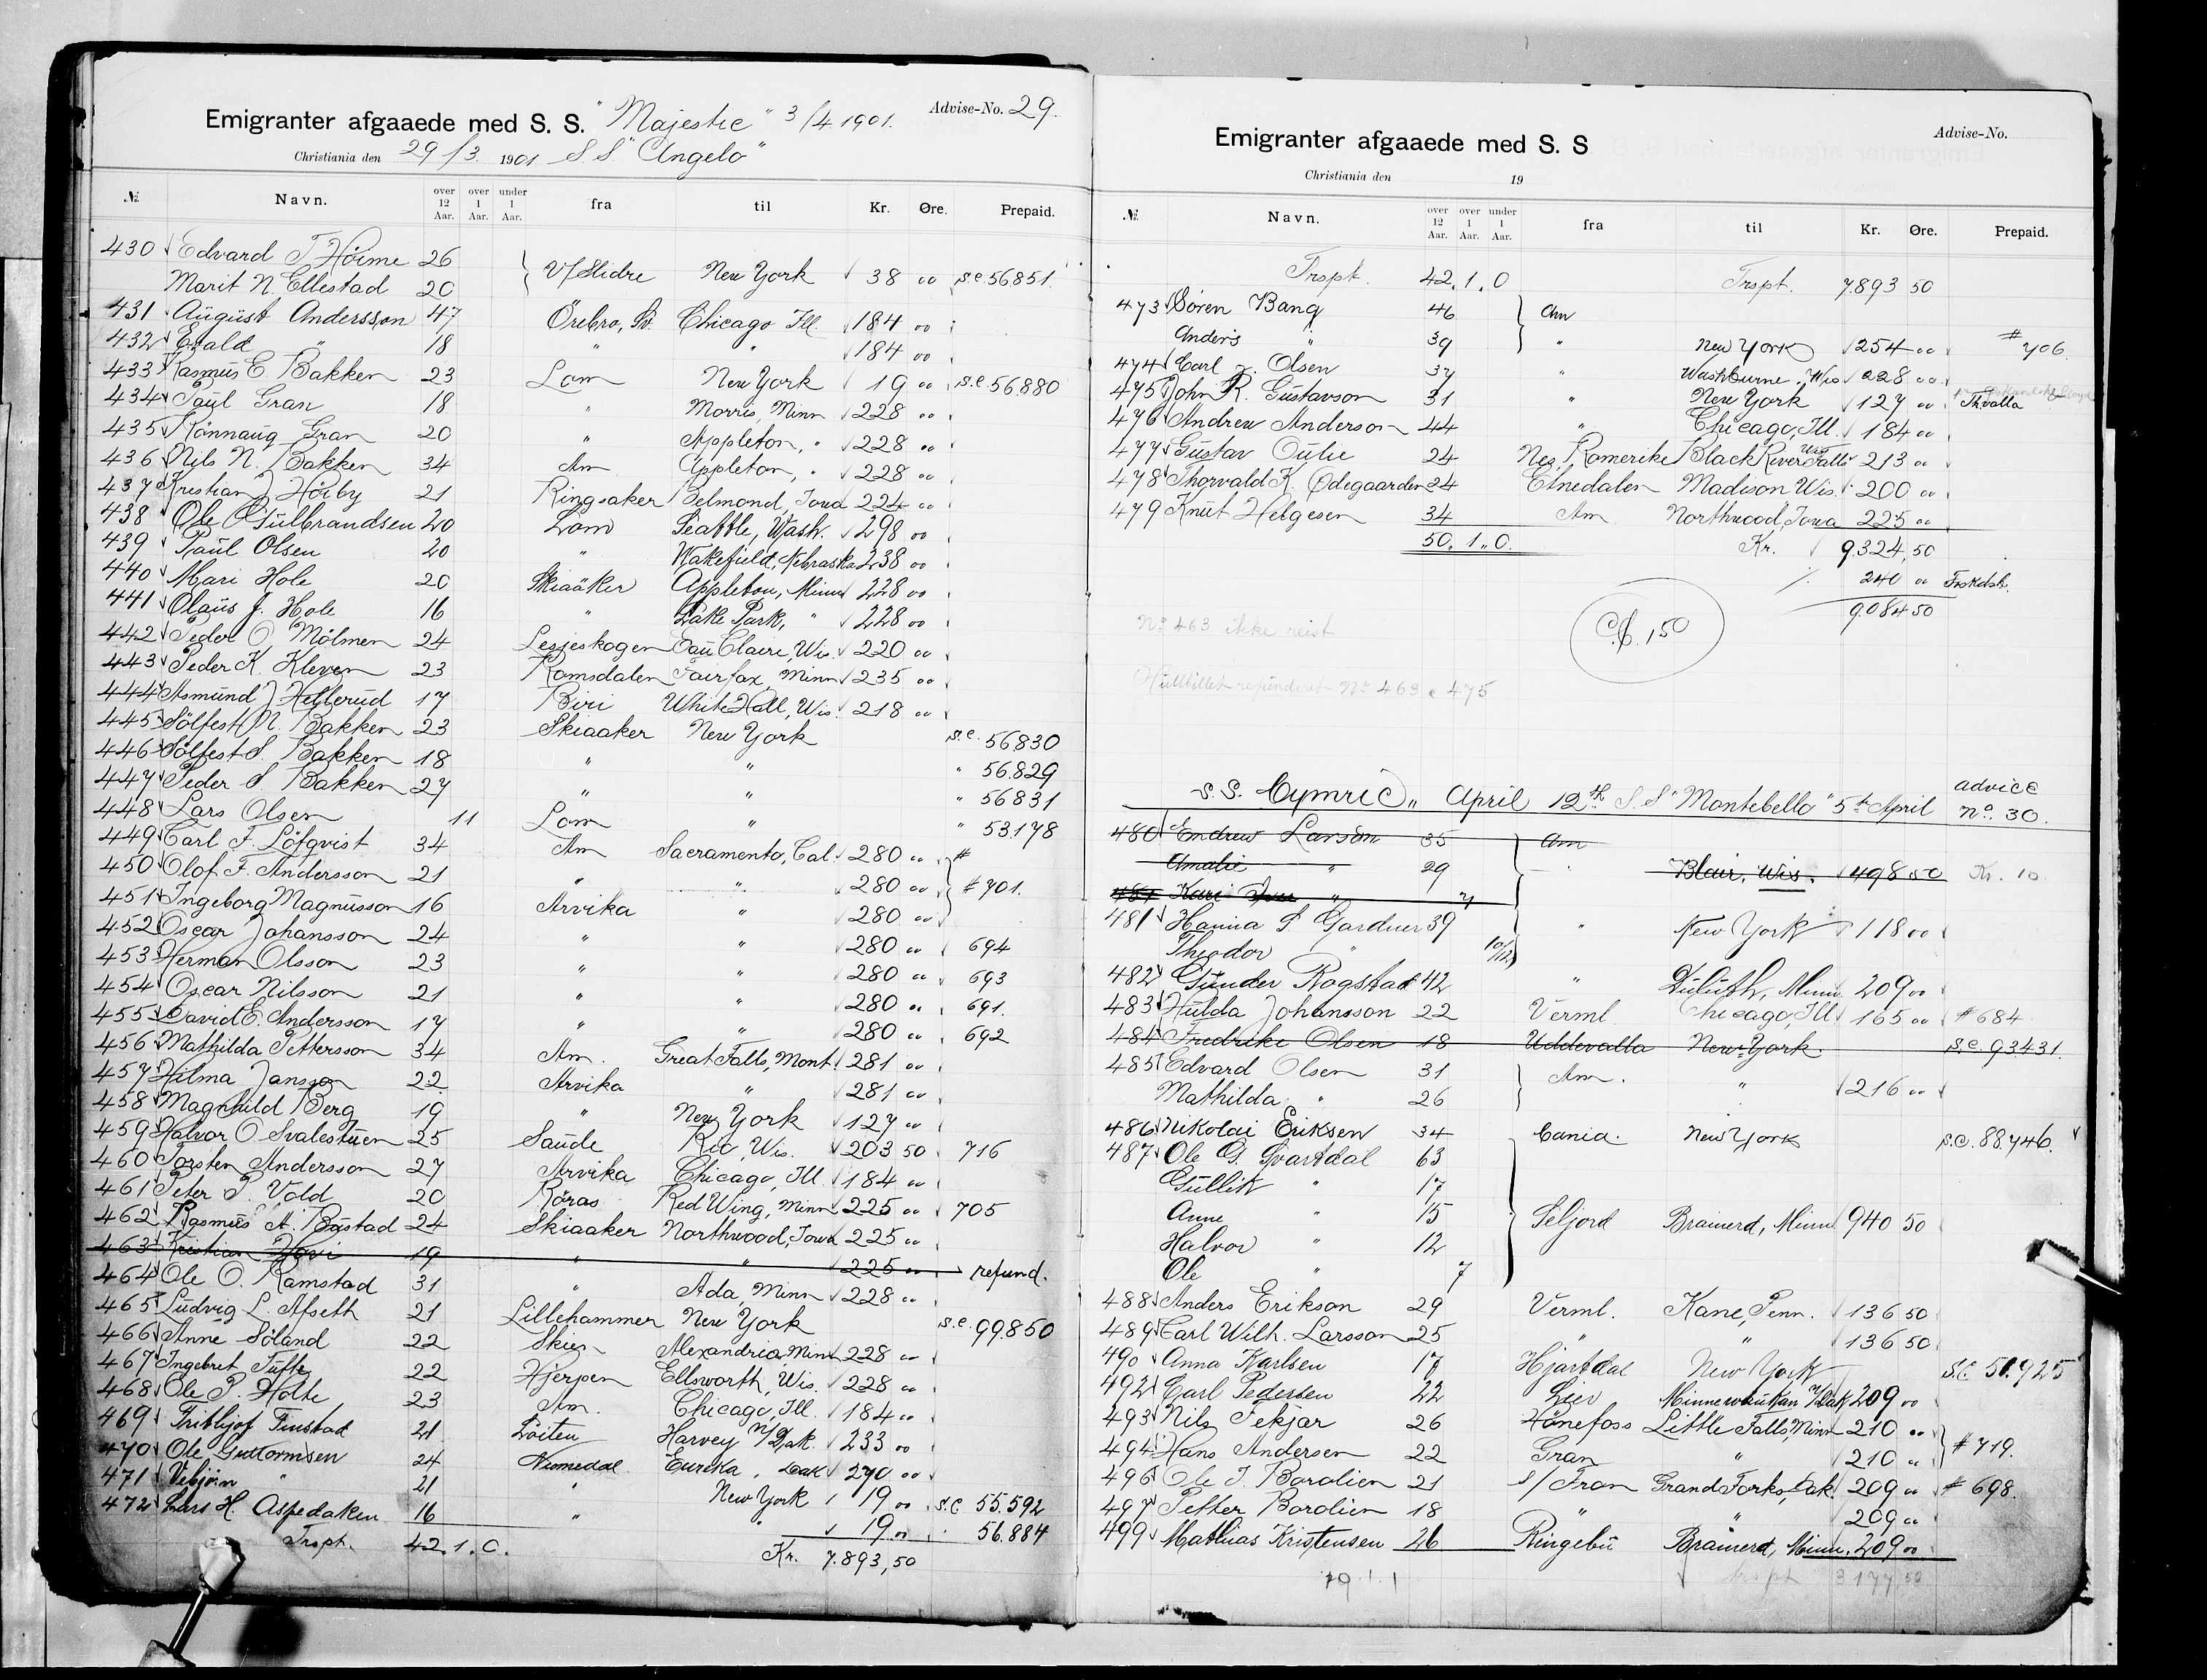 Emigranter afgaaede med S. S. "Majestic" 3/4 1901. Advise-No. 29.
Christiania den 29/3 1901 S S "Angelo"
№ Navn. over 12 Aar. over 1 Aar. under 1 Aar. fra til Kr. Øre. Prepaid.
430 Edvard T. Höime 26
Marit N. Ellestad 20 V/Slidre New York 38 00 s.c. 56851.
431 August Andersson 47 Örebro, Sv. Chicago Ill. 184 00
432 Evald " 18 " " 184 00
433 Rasmus E. Bakken 23 Lom New York 19 00 s.c. 56880
434 Paul Gran 18 " Morris, Minn 228 00
435 Rönnaug Gran 20 " Appleton, " 228 00
436 Nils N. Bakken 34 Am Appleton, " 228 00
437 Kristian J Höiby 21 Ringsaker Belmond, Iowa 224 00
438 Ole O Gulbrandsen 20 Lom Seattle, Wash. 298 00
439 Paul Olsen 20 " Wakefield, Nebraska 238 00
440 Mari Hole 20 Skiaaker Appleton, Minn 228 00
441 Olaus J. Hole 16 " Lake Park, " 228 00
442 Peder O. Mölmen 24 Lesjeskogen Eau Claire, Wis. 220 00
443 Peder K. Kleven 23 Romsdalen Fairfax, Minn 235 00
444 Asmund J Hellerud 17 Biri White Hall, Wis. 218 00
445 Sölfest N. Bakken 23 Skiaaker New York s.c. 56830
446 Sölfest S. Bakken 18 " " " 56.829
447 Peder S. Bakken 27 " " " 56831
448 Lars Olsen 11 Lom " " 53.178
449 Carl F. Löfqvist 34 Am Sacramento, Cal. 280 00 #
450 Olof F. Andersson 21 " " 280 00 # 701.
451 Ingeborg Magnusson 16 Arvika " 280 00
452 Oscar Johansson 24 " " 280 00 694
453 Herman Olsson 23 " " 280 00 693
454 Oscar Nilsson 21 " " 280 00 691.
455 David E. Andersson 17 " " 280 00 692
456 Mathilda Pettersson 34 Am. Great Falls, Mont. 281 00
457 Hilma Jansson 22 Arvika " 281 00
458 Magnhild Berg 19 " New York 127 00
459 Halvor O. Svalestuen 25 Saude Rio, Wis. 203 50 716
460 Torsten Andersson 27 Arvika Chicago, Ill. 184 00
461 Peter P. Vold 20 Röras Red Wing, Minn 225 00 705
462 Rasmus A. Bastad 24 Skiaaker Northwood, Iowa 225 00
463 Kristian Hovi 19 " " 225 00 refund.
464 Ole O. Ramstad 31 " Ada, Minn 228 00
465 Ludvig L. Afseth 21 Lillehammer New York s.c. 99850
466 Anne Söland 22 Skien Alexandria, Minn 228 00
467 Ingebret Tufte 22 Hjerpen Ellsworth, Wis. 228 00
468 Ole P. Holte 23 Am. Chicago, Ill. 184 00
469 Frithjof Finstad 21 Löiten Harvey N/Dak. 233 00
470 Ole Guttormsen 24 Numedal Eureka, Dak 270 00
471 Vebjörn " 21 " New York 19 00 s.c. 55.592
472 Lars H. Aspedaken 16 " " 19.00 " 56.884
Trspt. 42.1.0. Kr. 7.893,50
Emigranter afgaaede med S. S Advise-No.
Christiania den 19
№ Navn. over 12 Aar. over 1 Aar. under 1 Aar. fra til Kr. Øre. Prepaid.
Trspt. 42.1.0 Trspt. 7893 50
473 Sören Bang 46 Am
Anders " 39 " New York 254 00 # 706.
474 Carl J. Olsen 37 " Washburne, Wis 228 00
475 John R. Gustavson 31 " New York 127 00 Thvalla
476 Andrew Anderson 44 " Chicago, Ill. 184 00
477 Gustav Oulie 24 Nes, Romerike Black River Falls Wis 213 00
478 Thorvald K. Ødegaarden 24 Etnedalen Madison Wis. 200 00
479 Knut Helgesen 34 Am Northwood, Iowa 225 00
50.1.0. Kr. 9.324,50
240 00
9.084 50
150
No 463 ikke reist
refunderet No 463 & 475
S.S. Cymric" April 12th S.S "Montebello" 5th April advice No. 30.
480 Endrew Larson 35 Am
Amalie " 29 " Blair, Wis. 498 50 Kr. 10
481 Kari " 7
481 Hanna S Gardner 39 " New York 118 00
Theodor " 10/12
482 Gunder Rogstad 42 " Duluth, Minn. 209 00
483 Hulda Johansson 22 Verml. Chicago, Ill 165 00 # 684
484 Fredrike Olsen 18 Uddevalla New York s.c. 93431.
485 Edvard Olsen 31 Am. " 216 00
Mathilda " 26
486 Nikolai Eriksen 34 Cania. New York s.c. 88746.
487 Ole G. Svartdal 63
Gullik " 17
Anne " 15 Seljord Brainerd, Minn 940 50
Halvor " 12
Ole " 7
488 Anders Erikson 29 Verml. Kane, Penn. 136 50
489 Carl Wilh. Larsson 25 " " 136 50
490 Anna Karlsen 17 Hjartdal New York s.c. 51.925
492 Carl Pedersen 22 Lier Minnewaukan N/Dak 209 00
493 Nils Fekjar 26 Hönefoss Little Falls, Minn 210 00
494 Hans Andersen 22 Gran " 210 00 # 719.
496 Ole J. Borolien 21 S/Fron Grand Forks, Dak. 209 00 # 698.
497 Petter Borolien 18 " " 209 00
499 Mathias Kristensen 26 Ringebu Brainerd, Minn. 209 00
19.1.1 trspt 3177,50